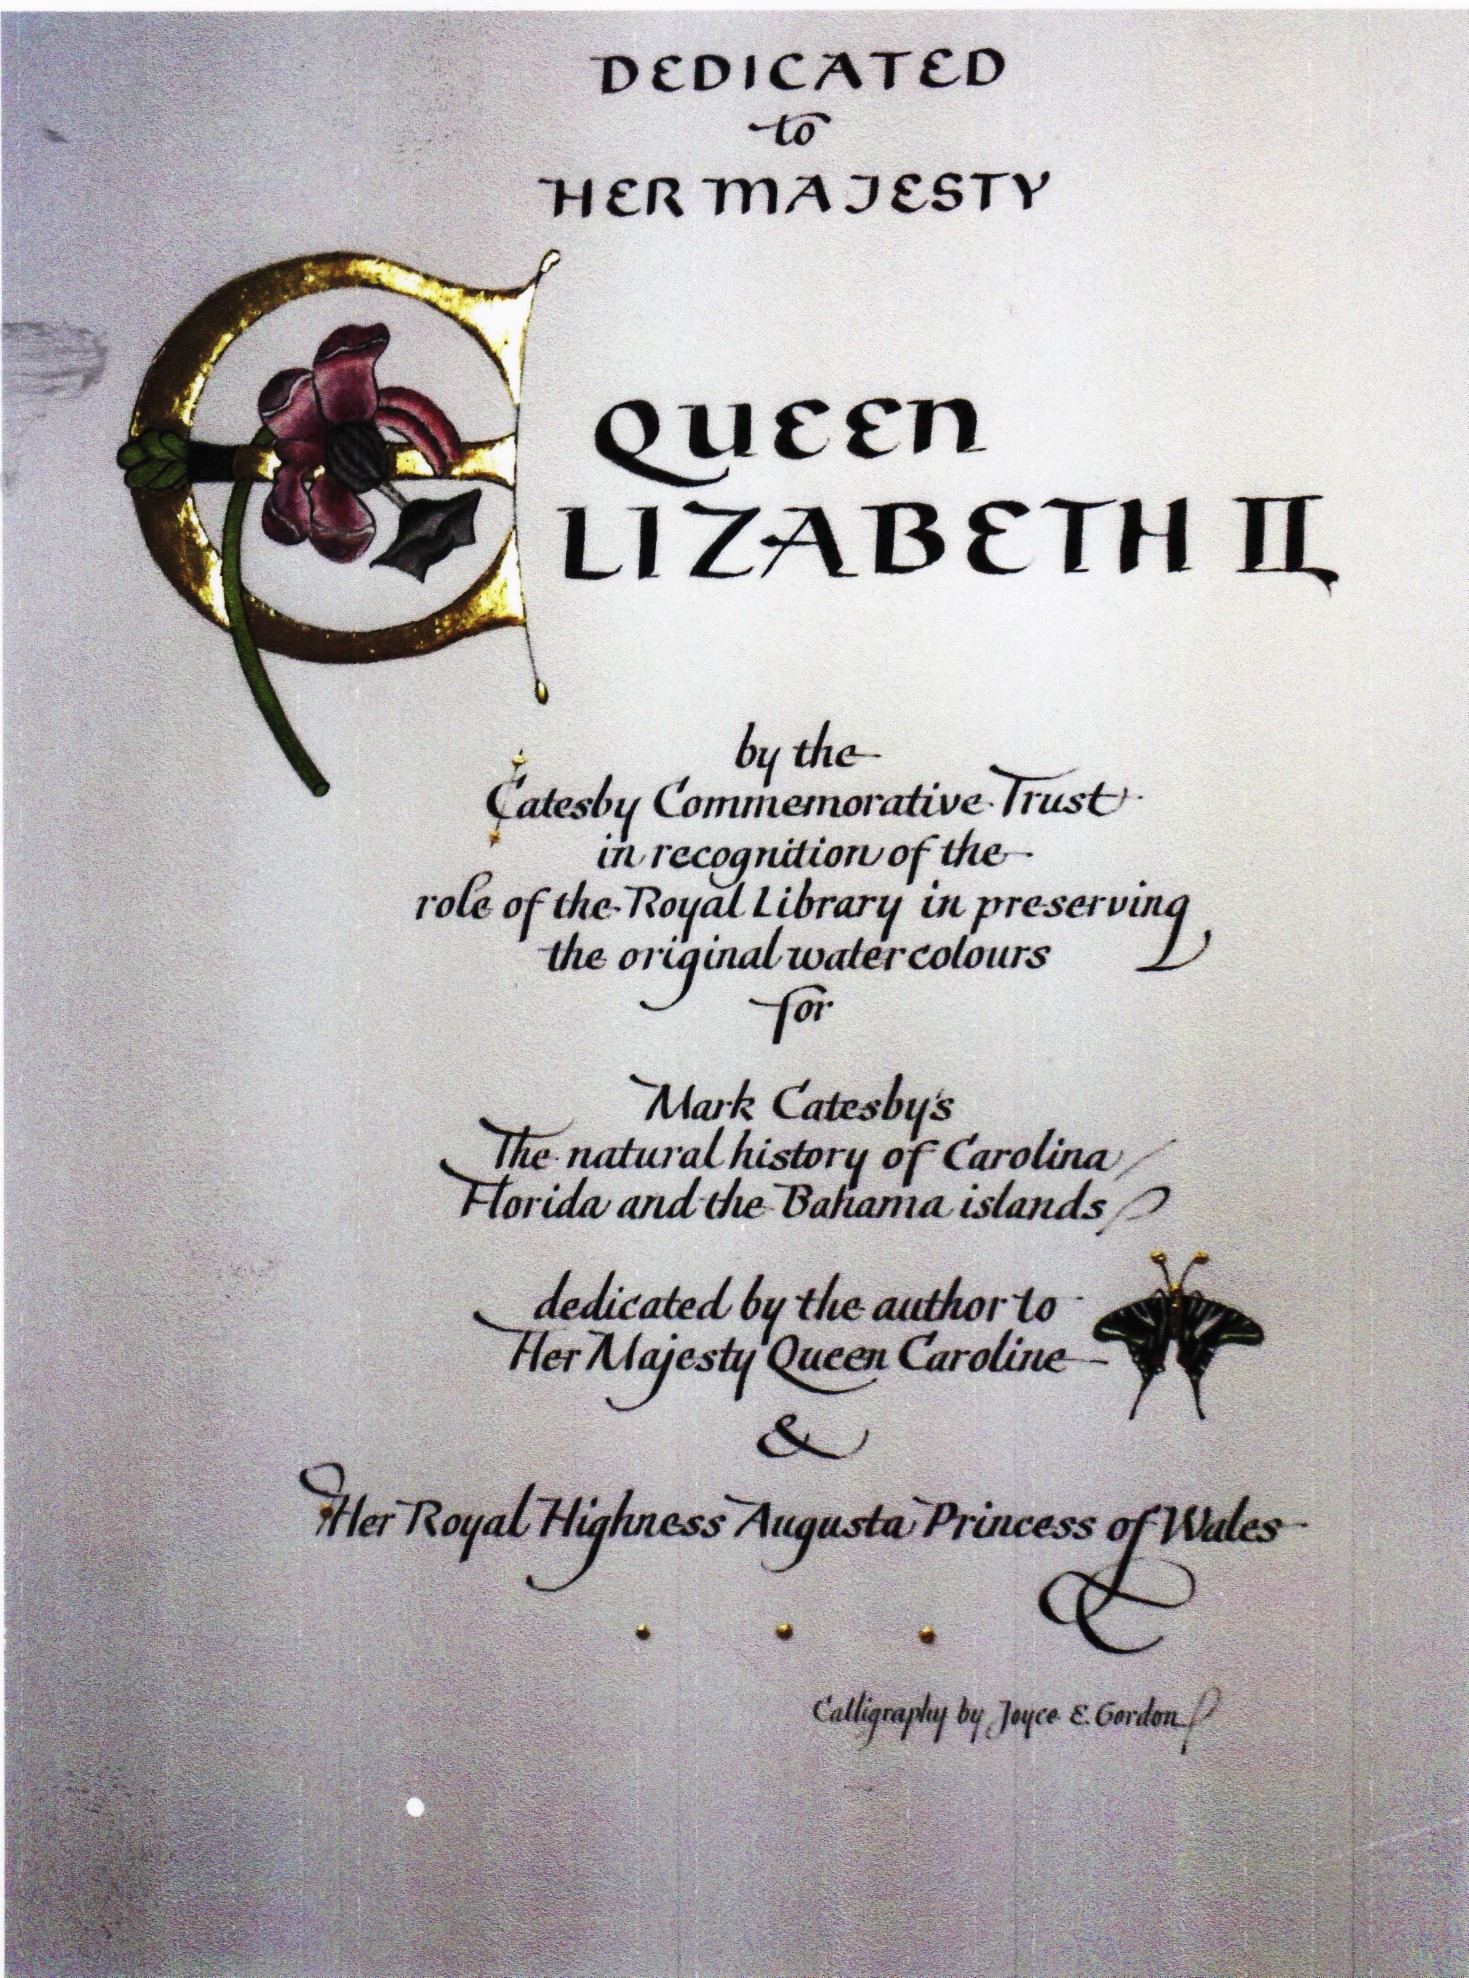 DEDICATED
to
HER MAJESTY
QUEEN
ELIZABETH II
by the
Catesby Commemorative Trust
in recognition of the
role of the Royal Library in preserving
the original watercolours
for
Mark Catesby's
The natural history of Carolina
Florida and the Bahama islands
dedicated by the author to
Her Majesty Queen Caroline
&
Her Royal Highness Augusta Princess of Wales
Calligraphy by Joyce E. Gordon